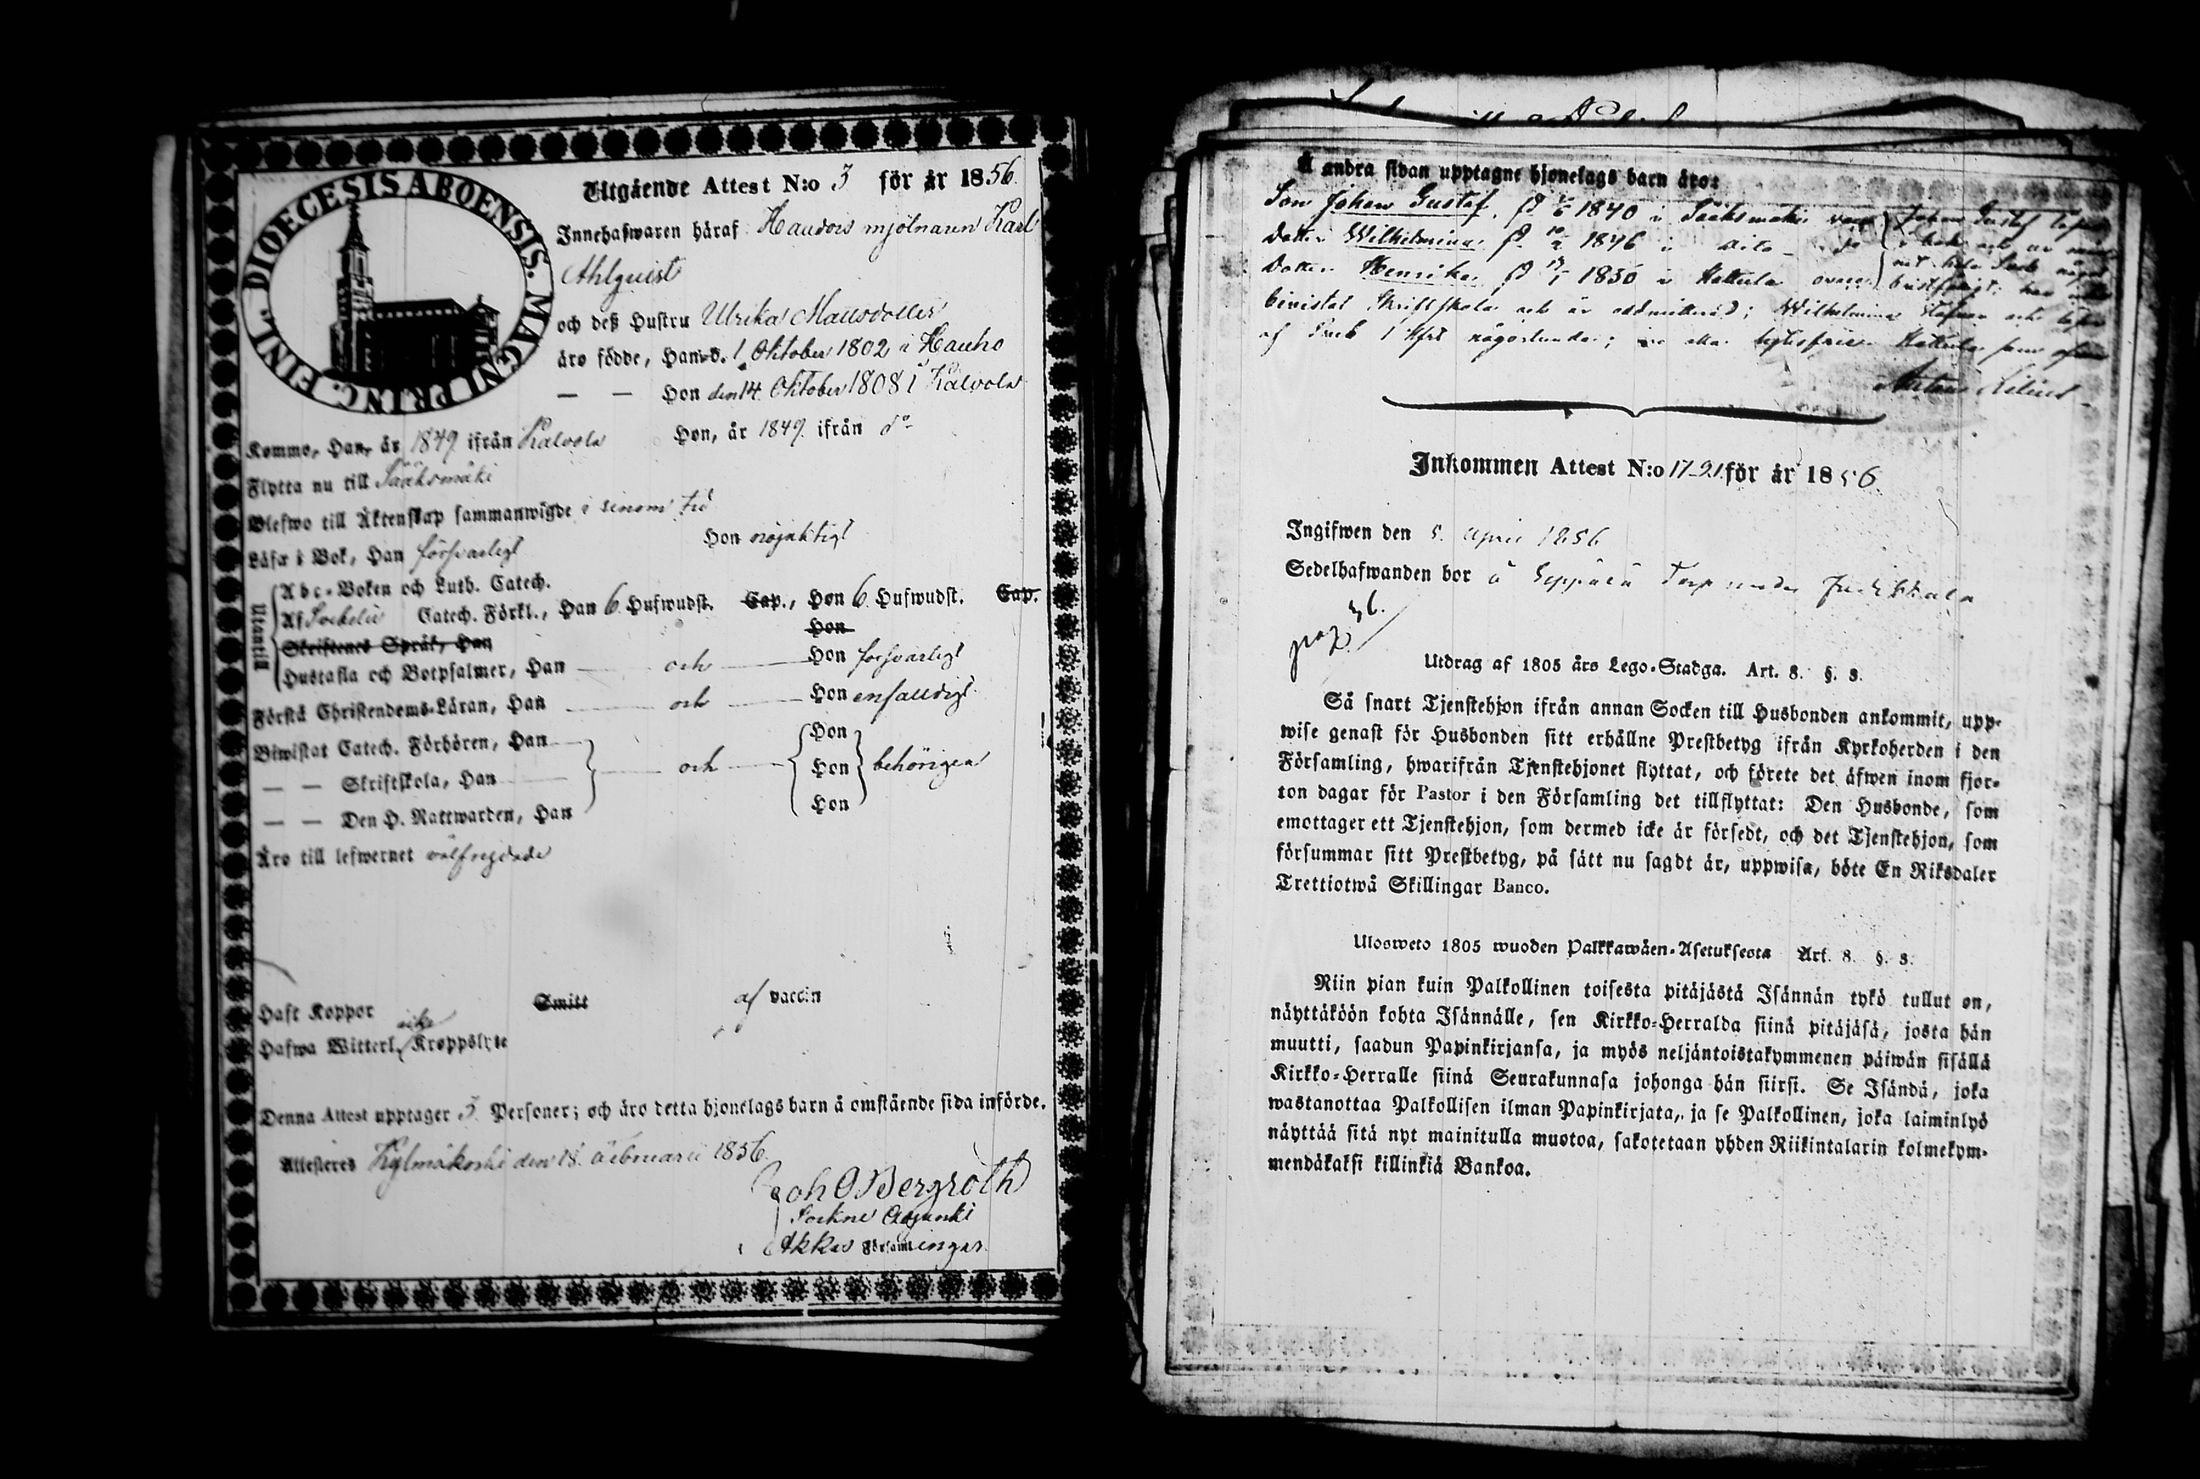 DIOECESIS ABOENSIS. MAGNI PRINC. FINL.
Utgående Attest N:o 3 för år 1856.
Innehafwaren häraf Haudois mjölnaren Karl
Ahlquist
och deß Hustru Ulrika Mattsdotter
äro födde, Han d. 1 Oktober 1802 i Hauho
— — Hon den 14 Oktober 1808 i Kalvola
Kommo, Han, år 1849 ifrån Kalvola Hon, år 1849 ifrån do
Flytta nu till Sääksmäki
Blefwo till Äktenskap sammanwigde i sinom tid
Läsa i Bok, Han försvarligt Hon nöjaktigt
Utantill
Abc-Boken och Luth. Catech.
Af Svebelii Catech. Förkl., Han 6 Hufwudst. Cap., Hon 6 Hufwudst. Cap.
Skriftenes Språk, Han Hon
Hustafla och Botpsalmer, Han — och — Hon försvarligt
Förstå Christendoms-Läran, Han — och — Hon enfaldigt
Biwistat Catech. Förhören, Han Hon
— — Skriftskola, Han — och — Hon behörigen
— — Den H. Nattwarden, Han Hon
Äro till lefwernet välfrejdade
Haft Koppor Smitt af vaccin
Hafwa Witterl. icke Kroppslyte
Denna Attest upptager 5 Personer; och äro detta hjonelags barn å omstående sida införde.
Attesteres Kylmäkoski den 18 Februarii 1856
Joh O Bergroth
Sockne Adjunkt
Akkas Församlingar
Å andra sidan upptagne hjonelags barn äro:
Son Johan Gustaf, 1840 i Sääksmäki Johan Gustaf
Dotter Wilhelmina 1846 i dito
Dotter Henrika 1850 i Kattula
bivistat Skriftskola och är admitterad; Wilhelmina
af Sveb 1 någorlunda;
Inkommen Attest N:o 17-21 för år 1856
Ingifwen den 5 April 1856
Sedelhafwanden bor å Seppälä Torp under
pag 36.
Utdrag af 1805 års Lego-Stadga. Art. 8. §. 8.
Så snart Tjenstehjon ifrån annan Socken till Husbonden ankommit, upp-
wise genast för Husbonden sitt erhållne Prestbetyg ifrån Kyrkoherden i den
Församling, hwarifrån Tjenstehjonet flyttat, och förete det äfwen inom fjor-
ton dagar för Pastor i den Församling det tillflyttat: Den Husbonde, som
emottager ett Tjenstehjon, som dermed icke är försedt, och det Tjenstehjon, som
försummar sitt Prestbetyg, på sätt nu sagdt är, uppwisa, böte En Riksdaler
Trettiotwå Skillingar Banco.
Ulosweto 1805 wuoden Palkkawäen-Asetuksesta Art. 8. §. 8.
Niin pian kuin Palkollinen toisesta pitäjästä Isännän tykö tullut on,
näyttäköön kohta Isännälle, sen Kirkko-Herralda siinä pitäjäsä, josta hän
muutti, saadun Papinkirjansa, ja myös neljäntoistakymmenen päiwän sisällä
Kirkko-Herralle siinä Seurakunnasa johonga hän siirsi. Se Isändä, joka
wastanottaa Palkollisen ilman Papinkirjata, ja se Palkollinen, joka laiminlyö
näyttää sitä nyt mainitulla muotoa, sakotetaan yhden Riikintalarin kolmekym-
mendäkaksi killinkiä Bankoa.